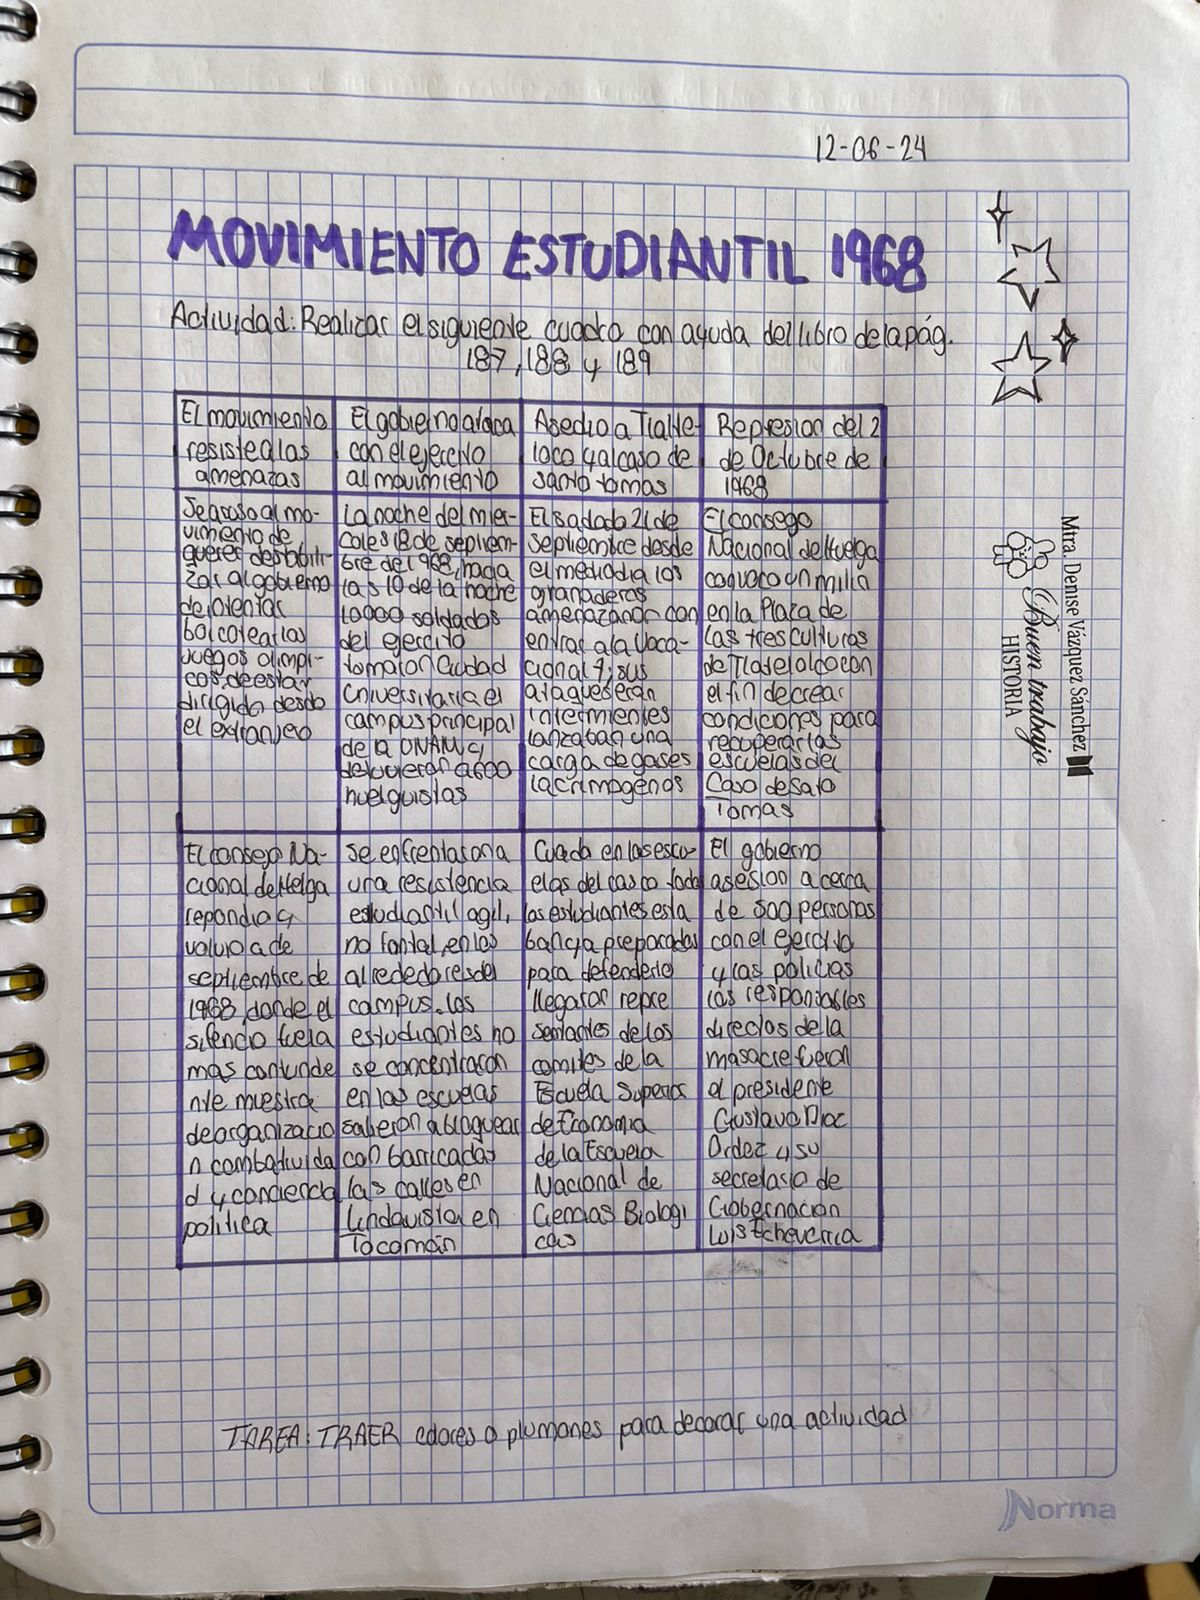 12-06-24
MOVIMIENTO ESTUDIANTIL 1968
Actividad: Realizar el siguiente cuadro con ayuda del libro de la pág.
187, 188 y 189
El movimiento
resiste a las
amenazas
El gobierno ataca
con el ejercito
al movimiento
Asedio a Tlalte-
loco y al caso de
santo tomas
Represion del 2
de Octubre de
1968
Se acuso al mo-
vimiento de
querer destabili-
zar al gobierno
de intentar
boicotear las
Juegos olimpi-
cos, de estar
dirigido desde
el extranjero
La noche del mier-
coles 18 de septiem-
bre del 1968, hacia
las 10 de la noche
10000 soldados
del ejercito
tomaron Ciudad
Universitaria el
campus principal
de la UNAM y
detuvieron a 600
huelguistas
El sadado 21 de
septiembre desde
el mediodia los
granaderos
amenazando con
entrar a la Voca-
cional 7; sus
ataques eran
intermientes
lanzaban una
carga de gases
lacrimogenos
El consego
Nacional de Huelga
coquoco un milin
en la Plaza de
las tres culturas
de Tlatelolco con
el fin de crear
condiciones para
recuperar las
escuelas del
Caso de sato
Tomas
El consejo Na-
cional de Helga
repondio y
volvio a de
septiembre de
1968, donde el
silencio fue la
mas contunde
nte muestra
de organizacio
n combatuvida
d y conciencia
politica
Se enfrentaron a
una resistencia
estudiantil agil,
no fontal, en los
alrededores del
campus. los
estudiantes no
se concentraron
en las escuelas
salieron a bloquear
con barricadas
las calles en
Lindavista, en
Tocomán
Cuado en las escu-
elas del casco todo
los estudiantes esta
ban ya preparados
para defenderlo
llegaron repre
sentantes de los
comites de la
Escuela Superior
de Economia
de la Escuela
Nacional de
Ciencias Biologi
cas
El gobierno
asesion a cerca
de 500 personas
con el ejercito
y las policias
los responzables
directos de la
masacre fueron
el presidente
Gustavo Diaz
Ordaz y su
secretario de
Gobernacion
Luis Echeverria
TAREA: TRAER colores o plumones para decorar una actividad
Mtra. Denise Vázquez Sánchez
Buen trabajo
HISTORIA
Norma